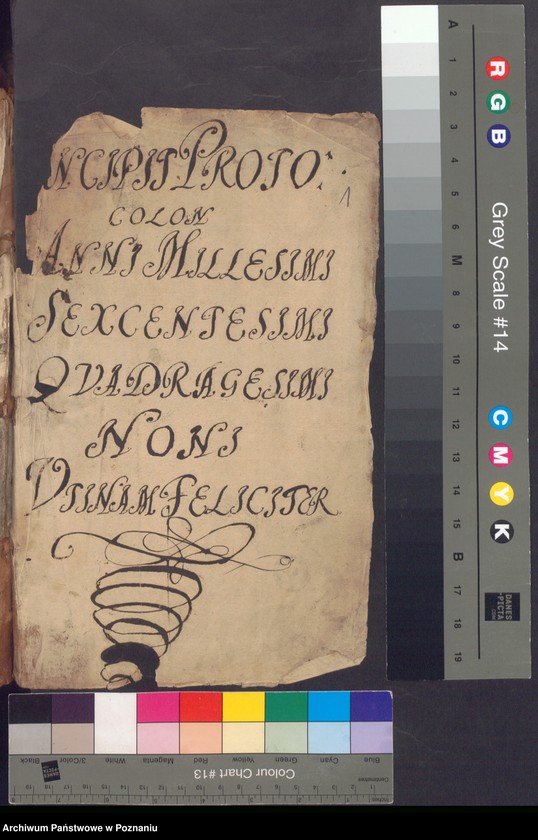 NCIPIT PROTO:
1
COLON
ANNI MILLESIMI
SEXCENTESIMI
QVADRAGESIMI
NONI
VTINAM FELICITER
A 1 2 3 4 5 6 M 8 9 10 11 12 13 14 15 B 17 18 19
R G B
Grey Scale #14
C M Y K
DANES
PICTA
.COM
Blue Cyan Green Yellow Red Magenta White 3/Color Black
Colour Chart #13
Centimetres
Inches
Archiwum Państwowe w Poznaniu